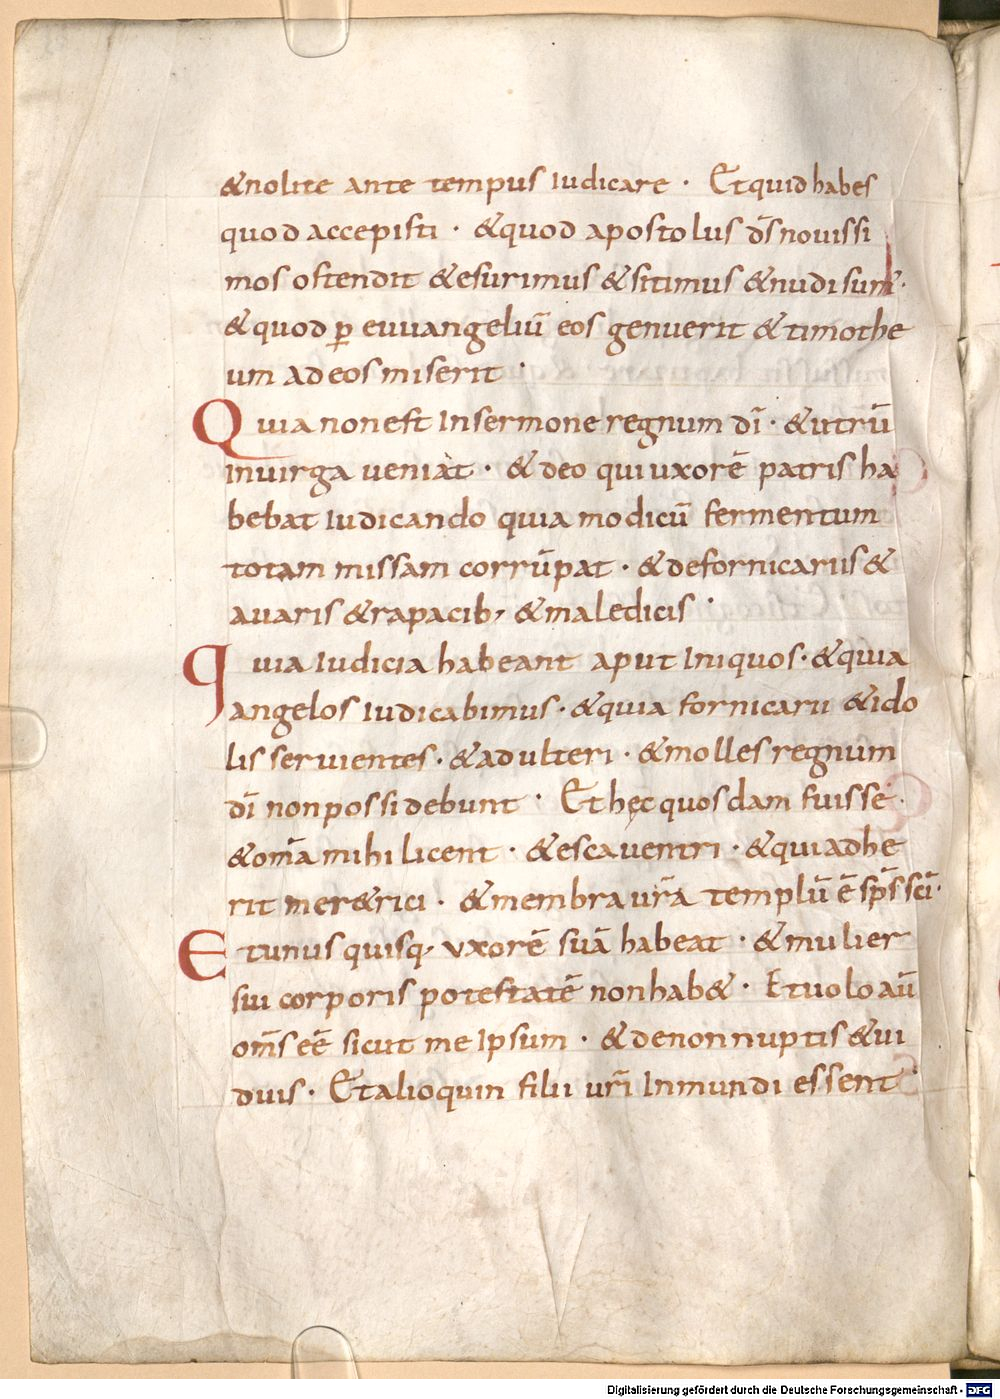 &nolite ante tempus Iudicare · Et quid habes
quod accepisti · & quod apostolus ds̄ nouissi
mos ostendit & esurimus & sitimus & nudi sum̄·
& quod ꝑ euuangeliū eos genuerit & timothe
um ad eos miserit ·
Quia non est In sermone regnum dī · & utrū
Inuirga ueniat · & deo qui uxorē patris ha
bebat Iudicando quia modicū fermentum
totam missam corrūpat · & de fornicariis &
auaris & rapacib; & maledicis ·
quia Iudicia habeant aput Iniquos · & quia
angelos Iudicabimus · & quia fornicarii & ido
lis seruientes · & adulteri · & molles regnum
dī non possidebunt · Et hęc quosdam fuisse ·
& om̄a mihi licent · & esca uentri · & qui adhe
rit mer&rici · & membra ur̄a templū ē sp̄s sc̄i ·
Et unus quisq; uxorē suā habeat · & mulier
sui corporis potestatē non hab& · Et uolo aū
om̄s eē sicut me Ipsum · & de non nuptis & ui
duis · Et alioquin filii ur̄i Inmundi essent ·
Digitalisierung gefördert durch die Deutsche Forschungsgemeinschaft - DFG